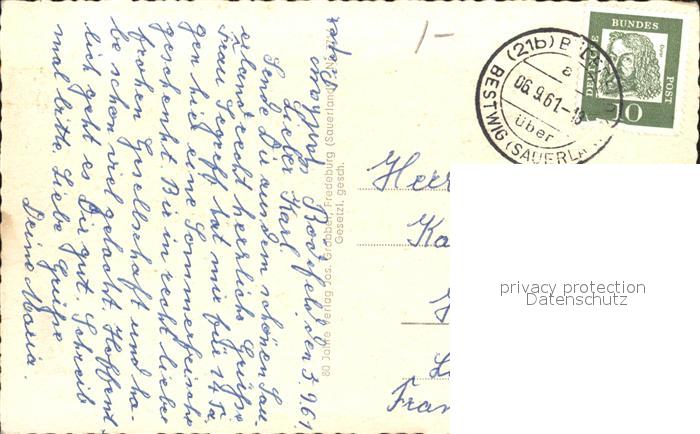 Bödefeld, den 5. 9. 61
Lieber Karl.
Sende Dir aus dem schönen Sau-
erland recht herrliche Grüße
Frau hat mir für 14 Ta-
gen hier eine Sommerfrische
geschenkt. Bin in recht lieber
frohen Gesellschaft und ha-
be schon viel gelacht. Hoffent-
lich geht es Dir gut. Schreib
mal bitte. Liebe Grüße
Deine Maria.
80 Jahre Verlag Jos. Grobbel, Fredeburg (Sauerland)
Gesetzl. gesch.
1-
(21b)
a
06.9.61-18
über
BESTWIG (SAUERLA
DEUTSCHE
BUNDES
POST
10
Herr
Ka
Fran
privacy protection
Datenschutz